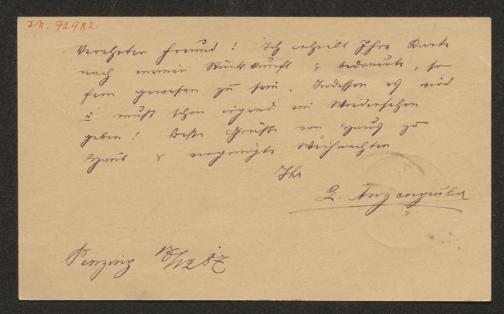 I.N. 72982
Verehrter Freund! Ich erhielt Ihre Karte
nach meiner Rückkunft & bedauerte, so
fern gewesen zu sein. Indessen es wird
& muß schon irgend ein Wiedersehen
geben! Beste Grüße von Haus zu
Haus & vergnügte Weihnachten
Ihr
L. Anzengruber
Penzing 18/12 87